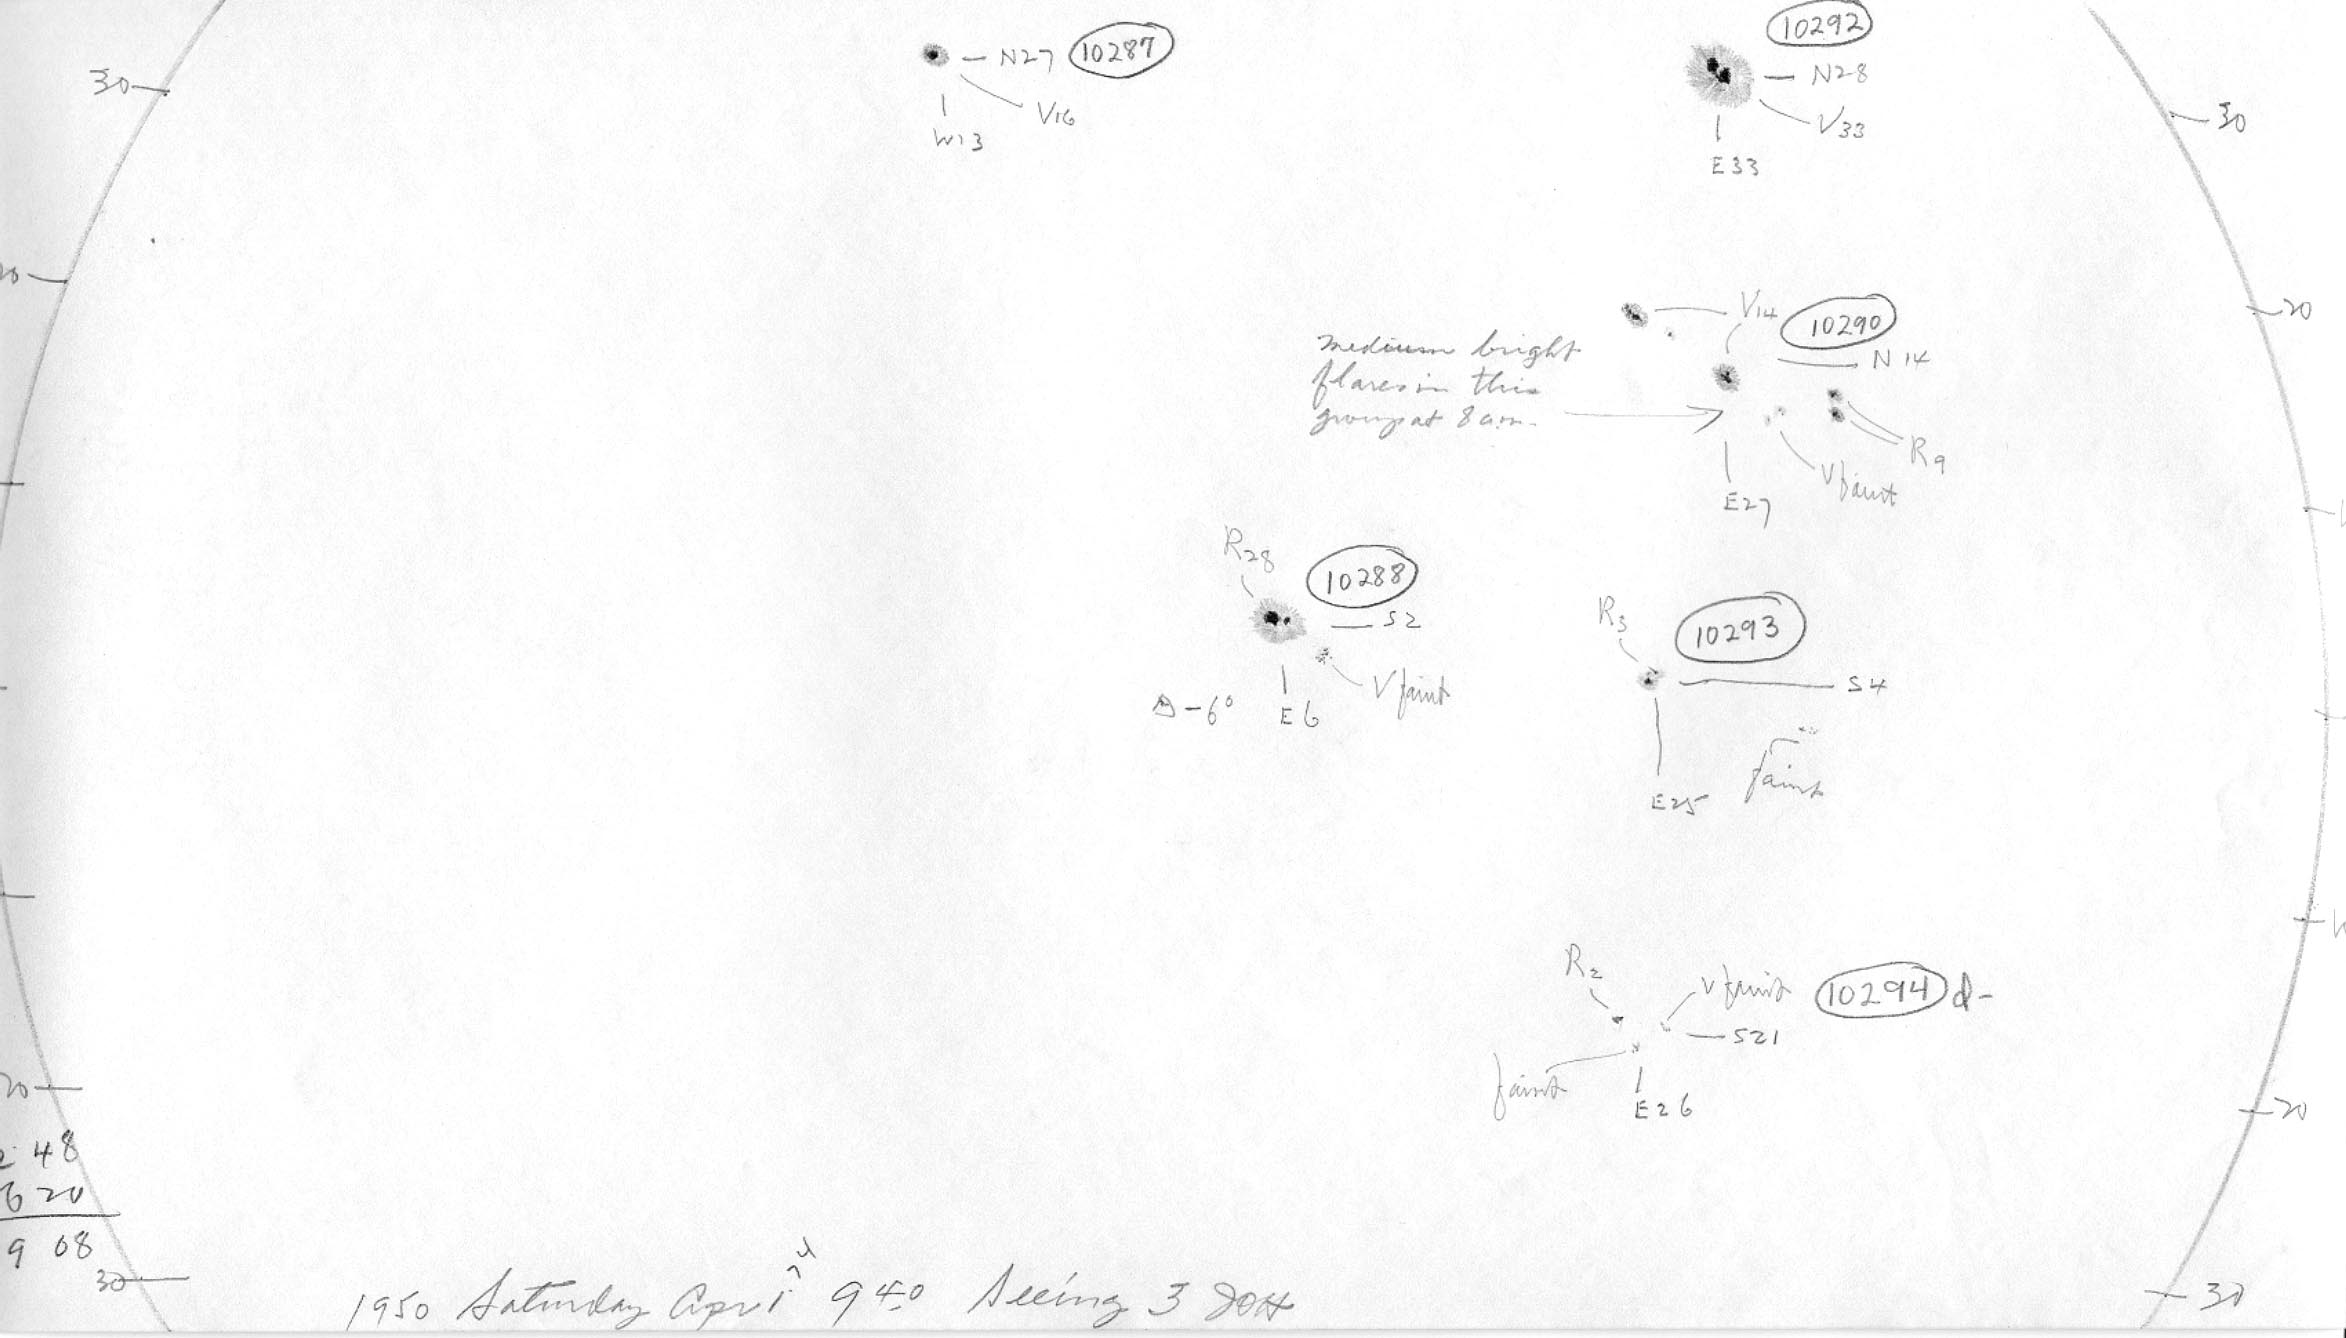 10292
30
N27 10287
N28
V16
V33
W13
30
E33
V14
10290
20
medium bright
N 14
flares in this
group at 8 am.
R9
V faint
E27
R28
10288
S2
R3
10293
V faint
S4
Δ-6°
E6
faint
E25
R2
V faint
10294 d-
S21
faint
E26
20
20
48
6 20
9 08
30
30
1950 Saturday April 9 40 Seeing 3 JOH